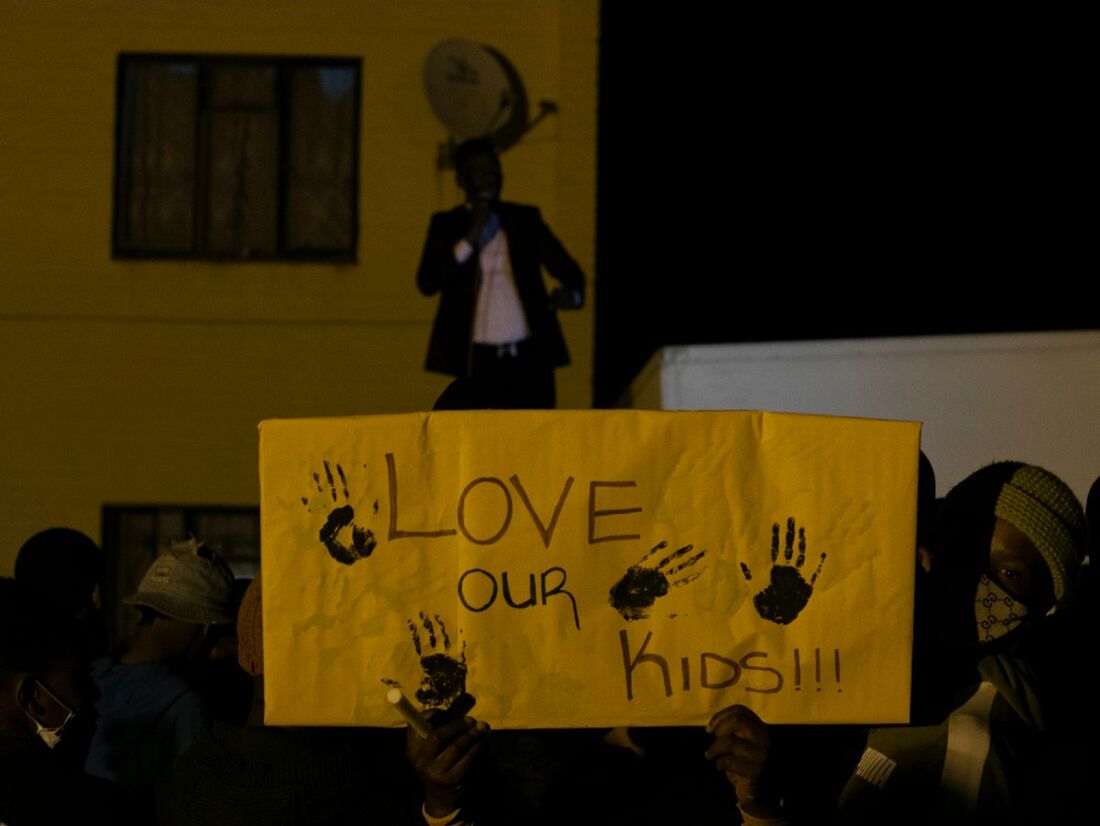 LOVE
OUR
KIDS!!!